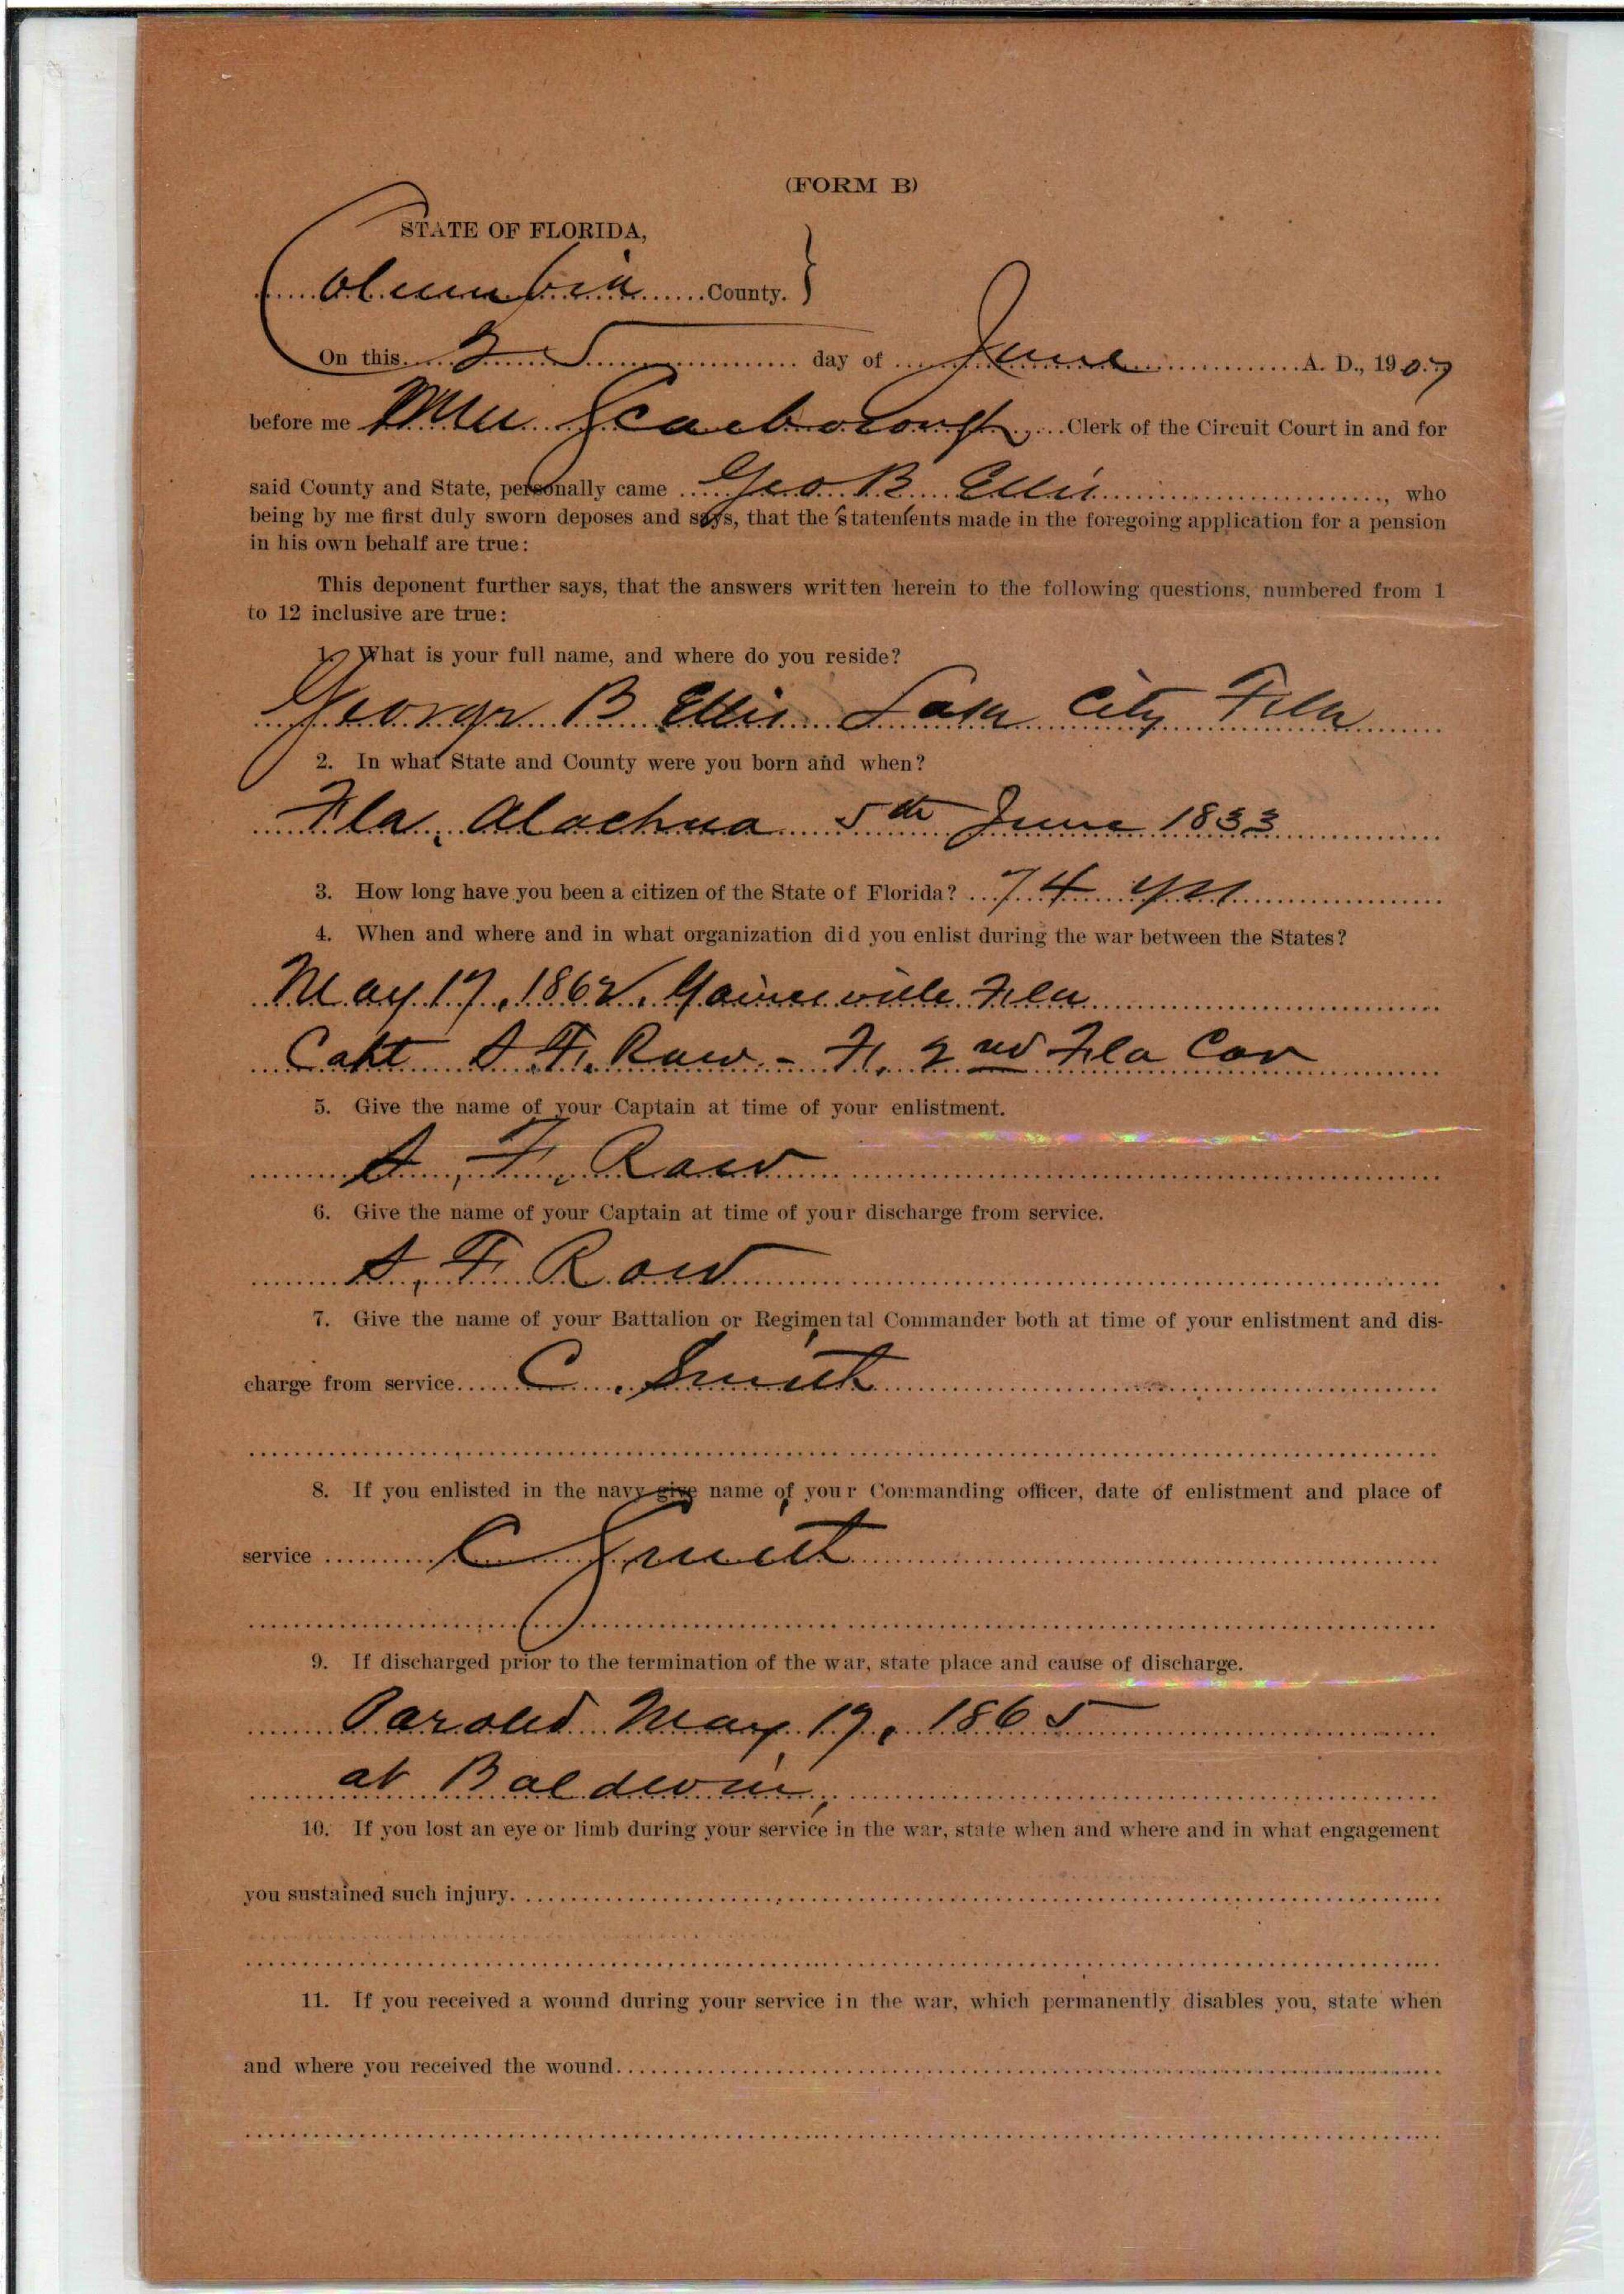 (FORM B)
STATE OF FLORIDA,
Columbia County.
On this 25 day of June A. D., 1907
before me Scarborough, Clerk of the Circuit Court in and for
said County and State, personally came Geo B Ellis, who
being by me first duly sworn deposes and says, that the statements made in the foregoing application for a pension
in his own behalf are true:
This deponent further says, that the answers written herein to the following questions, numbered from 1
to 12 inclusive are true:
1. What is your full name, and where do you reside?
George B Ellis Lake City Fla
2. In what State and County were you born and when?
Fla, Alachua 5th June 1833
3. How long have you been a citizen of the State of Florida? 74 yrs
4. When and where and in what organization did you enlist during the war between the States?
May 17, 1862. Gainesville Fla
Capt F. Row - 2nd Fla Cav
5. Give the name of your Captain at time of your enlistment.
F. Row
6. Give the name of your Captain at time of your discharge from service.
F Row
7. Give the name of your Battalion or Regimental Commander both at time of your enlistment and dis-
charge from service C. Smith
8. If you enlisted in the navy give name of your Commanding officer, date of enlistment and place of
service C Smith
9. If discharged prior to the termination of the war, state place and cause of discharge.
Paroled May 19, 1865
at Baldwin,
10. If you lost an eye or limb during your service in the war, state when and where and in what engagement
you sustained such injury.
11. If you received a wound during your service in the war, which permanently disables you, state when
and where you received the wound.